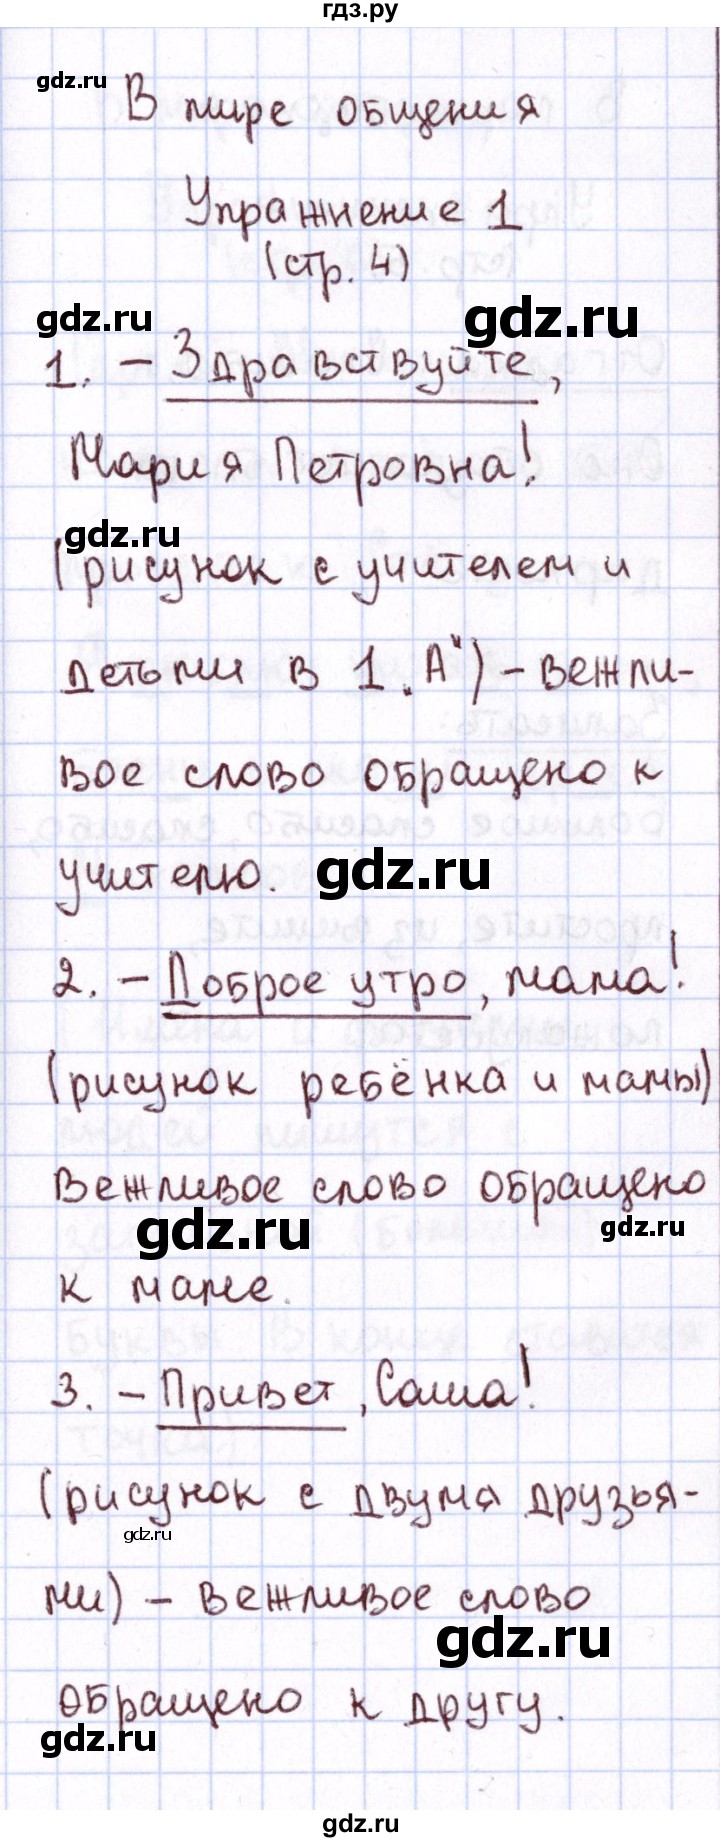 гдз.ру
gdz.ru
В мире общения
Упражнение 1
(стр. 4)
gdz.ru
gdz.ru
1. – Здравствуйте,
Мария Петровна!
gdz.ru
(рисунок с учителем и
детьми в 1 „А") – вежли-
вое слово обращено к
учителю.
gdz.ru
2. – Доброе утро, мама!
(рисунок ребёнка и мамы)
вежливое слово обращено
gdz.ru
gdz.ru
к маме.
3. – Привет, Саша!
(рисунок с двумя друзья-
gdz.ru
ми) – вежливое слово
gdz.ru
обращено к другу.
gdz.ru
gdz.ru